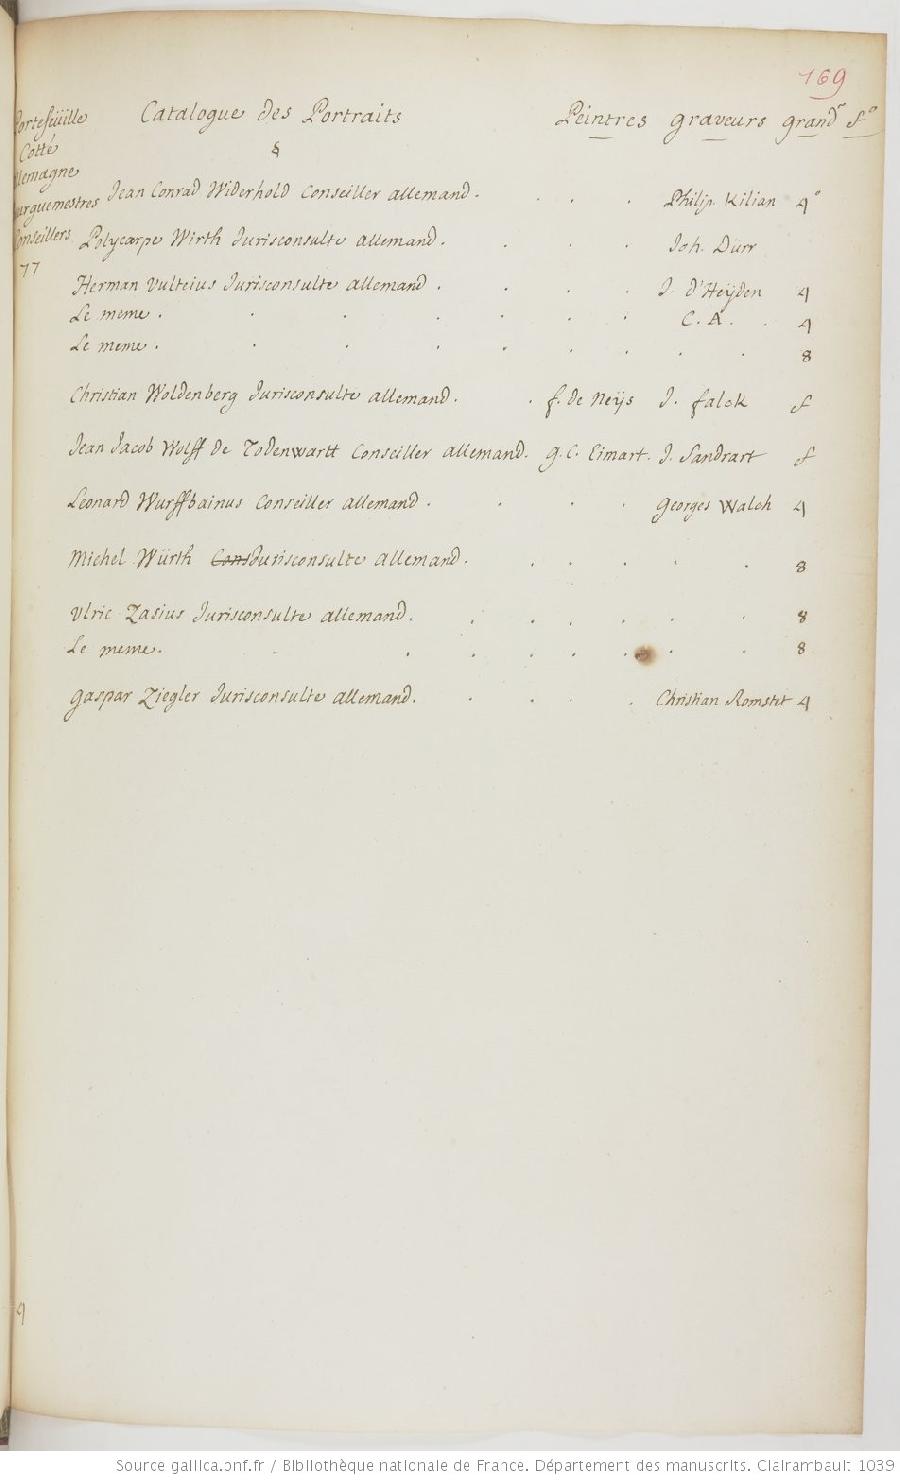 169
Portefüille Catalogue des Portraits Peintres graveurs grandr fo
Cotté §
allemagne
Bourguemestres Jean Conrad Widerhold Conseiller allemand. Philip Kilian 4o
Conseillers Polycarpe Wirth Jurisconsulte allemand. Joh. Dürr
77
Herman Vulteius Jurisconsulte allemand. J. d'Heÿden 4
Le meme. C. A. 4
Le meme. 8
Christian Woldenberg Jurisconsulte allemand. f. de Neijs J. falck f
Jean Jacob Wolff de Todenwartt Conseiller allemand. g. C. Eimart. J. Sandrart f
Leonard Wurffbainus Conseiller allemand. Georges Walch 4
Michel Würth Cons Jurisconsulte allemand. 8
Ulric Zasius Jurisconsulte allemand. 8
Le meme. 8
Gaspar Ziegler Jurisconsulte allemand. Christian Romstet 4
Source gallica.bnf.fr / Bibliothèque nationale de France. Département des manuscrits. Clairambault 1039